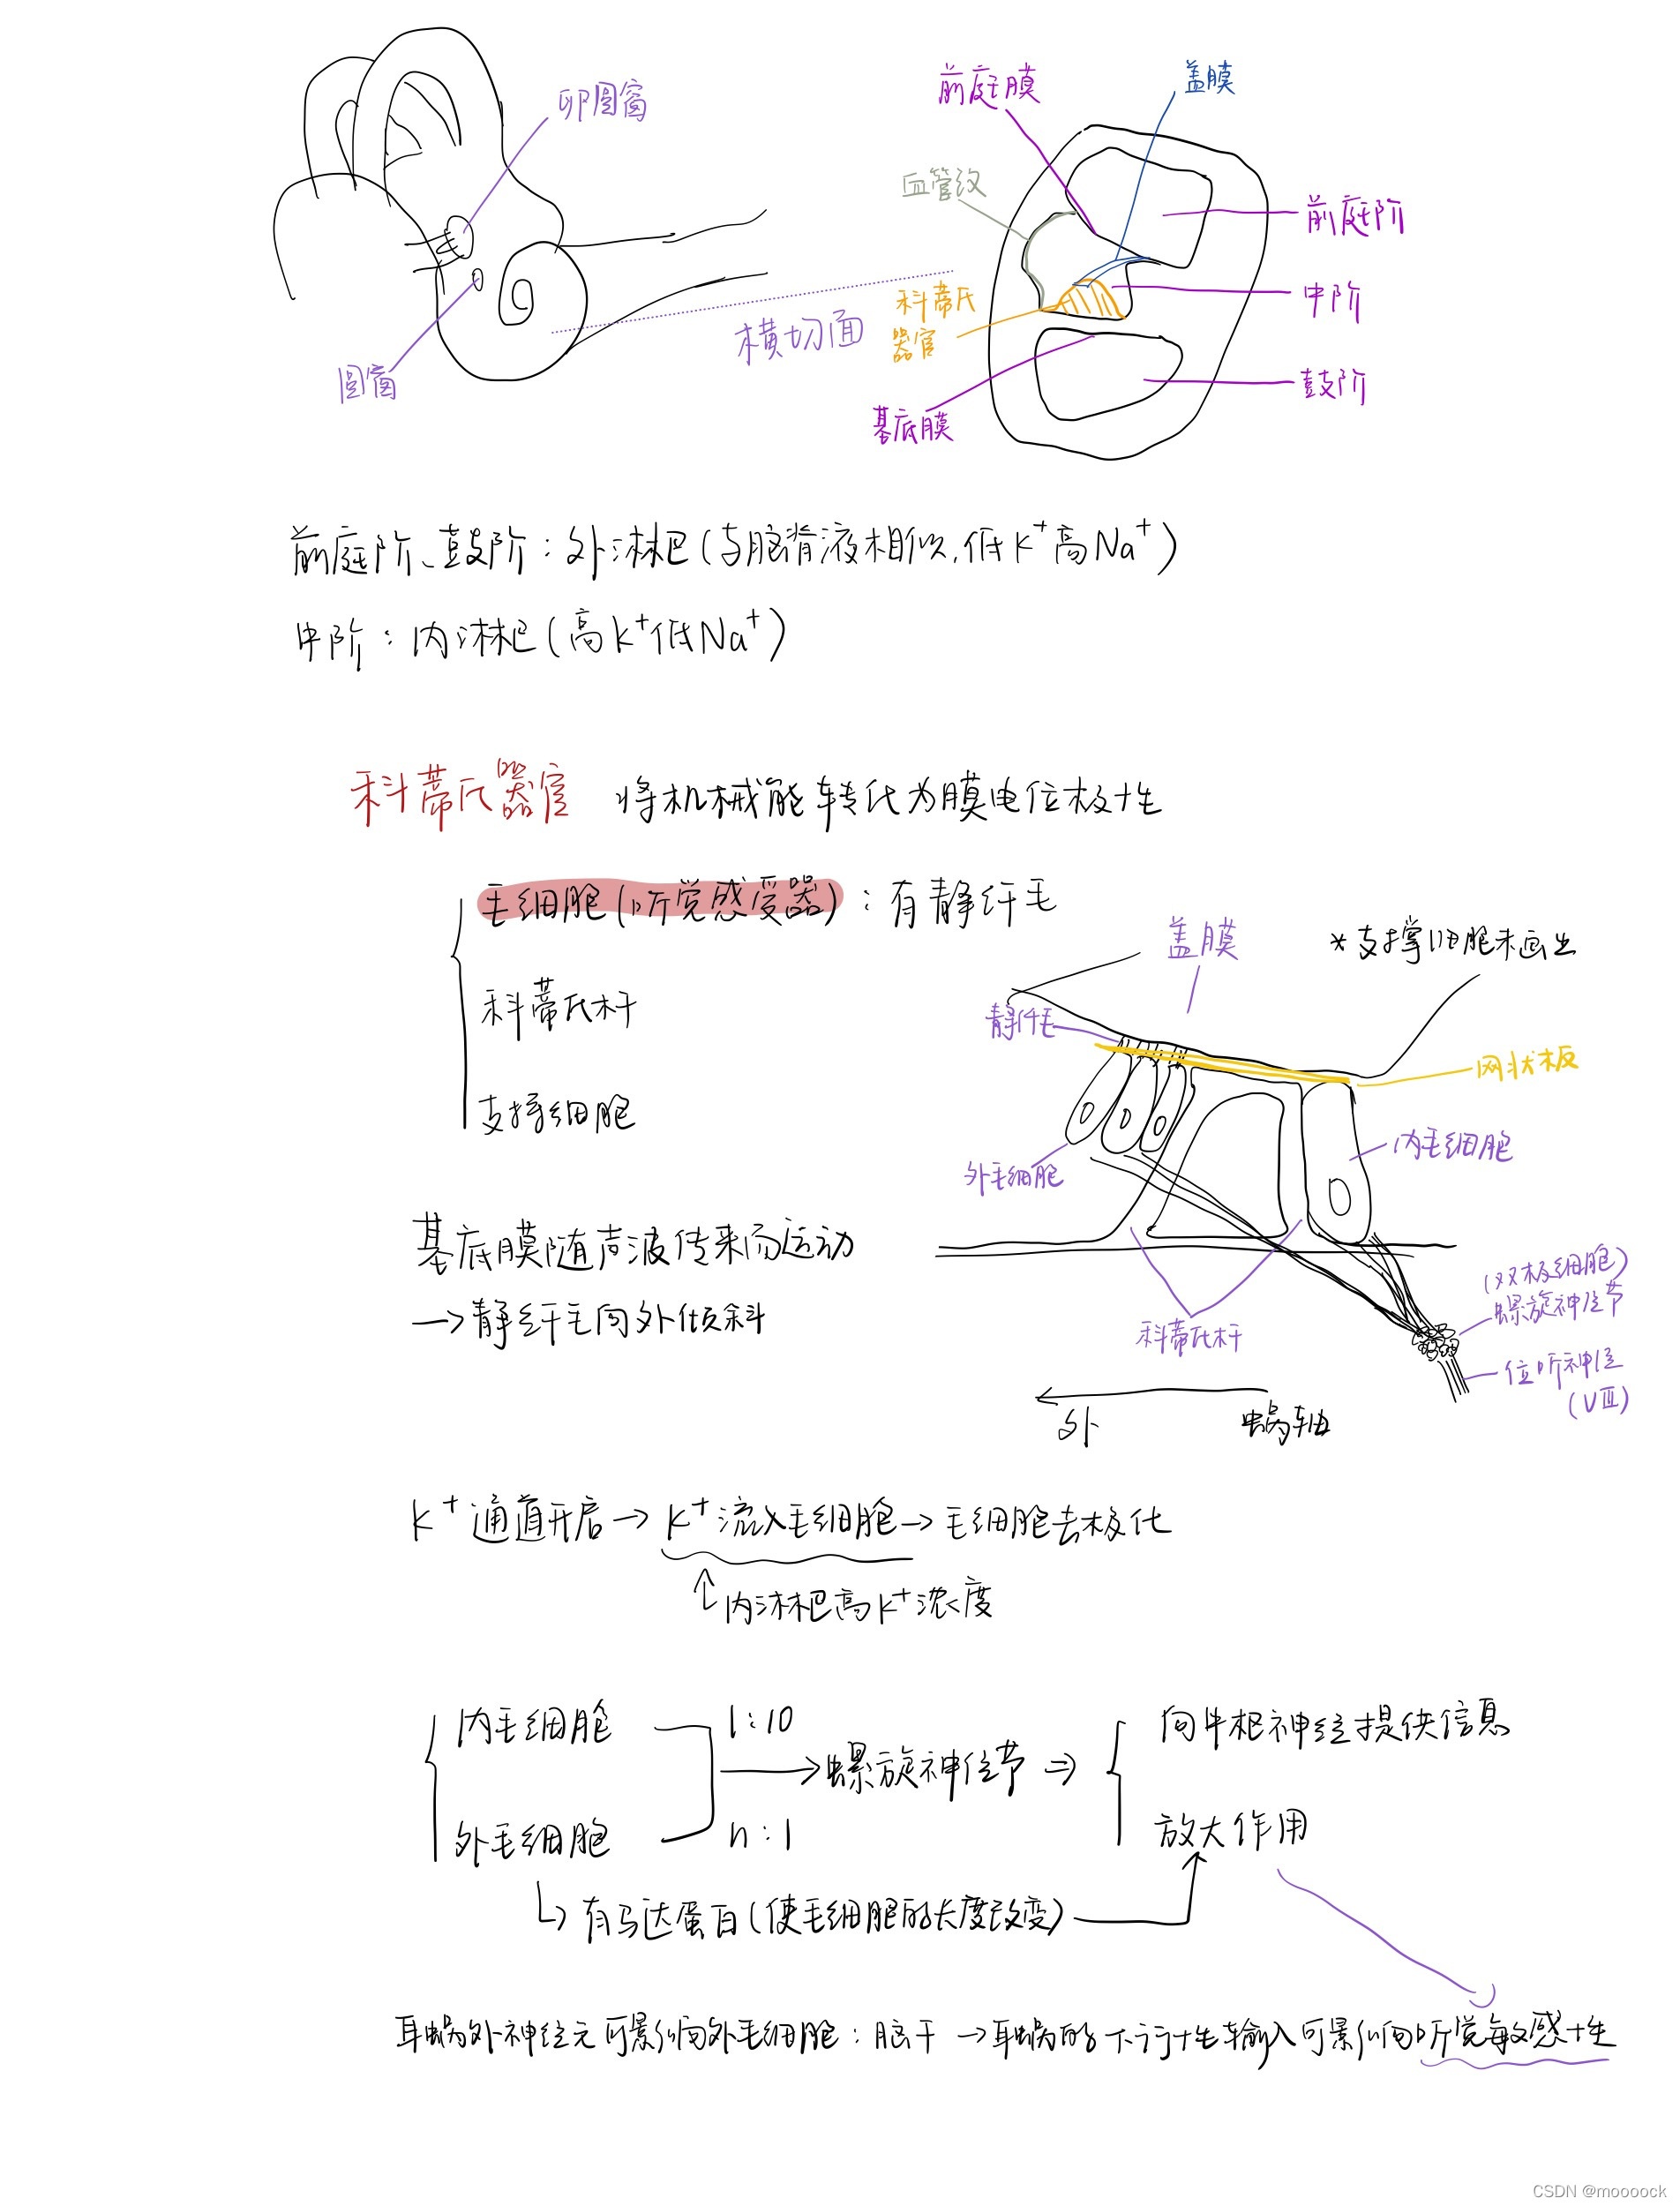 卵圆窗
圆窗
横切面
前庭膜
盖膜
血管纹
前庭阶
科蒂氏
器官
中阶
鼓阶
基底膜
前庭阶、鼓阶：外淋巴（与脑脊液相似，低K⁺高Na⁺）
中阶：内淋巴（高K⁺低Na⁺）
科蒂氏器官 将机械能转化为膜电位极性
毛细胞（听觉感受器）：有静纤毛
科蒂氏杆
支持细胞
盖膜
*支撑细胞未画出
静纤毛
网状板
外毛细胞
内毛细胞
基底膜随声波传来而运动
→静纤毛向外倾斜
（双极细胞）
螺旋神经节
科蒂氏杆
位听神经
（VⅢ）
外
蜗轴
K⁺通道开启→K⁺流入毛细胞→毛细胞去极化
↑内淋巴高K⁺浓度
内毛细胞 1:10
→螺旋神经节⇒
外毛细胞 n:1
向中枢神经提供信息
放大作用
↳有马达蛋白（使毛细胞的长度改变）
耳蜗外神经元可影响外毛细胞：脑干→耳蜗的下行性输入可影响听觉敏感性
CSDN @moooock